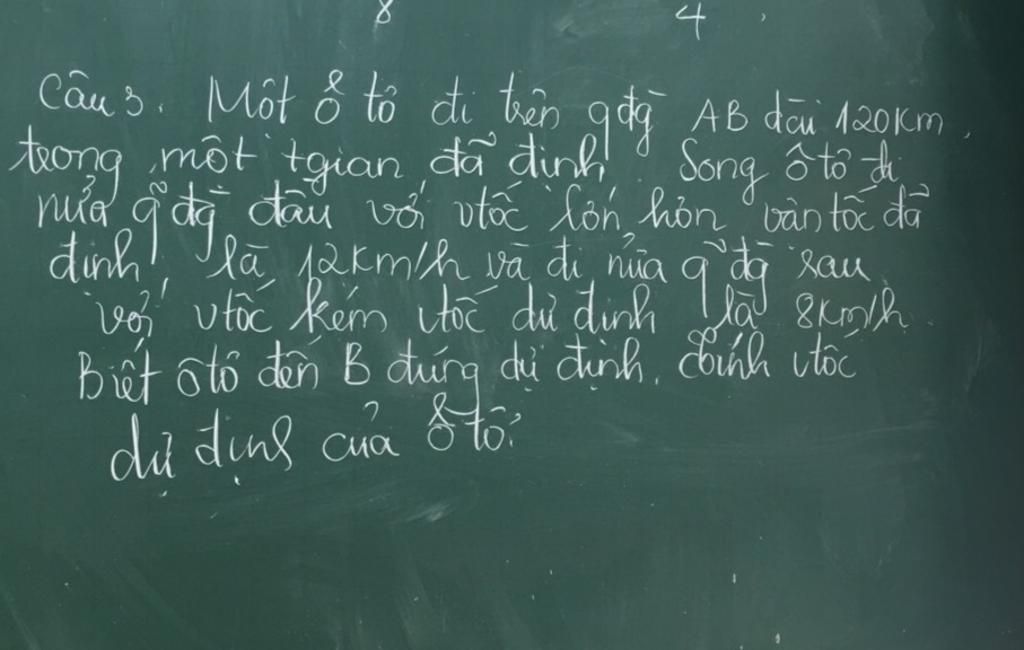 8 4
Câu 3. Một ô tô đi trên qđg AB dài 120Km,
trong một tgian đã định. Song ô tô đi
nửa qđg đầu với vtốc lớn hơn vân tốc đã
định là 12Km/h và đi nửa qđg sau
với vtốc kém vtốc dự định là 8Km/h.
Biết ôtô đến B đúng dự định, tính vtốc
dự định của ô tô.